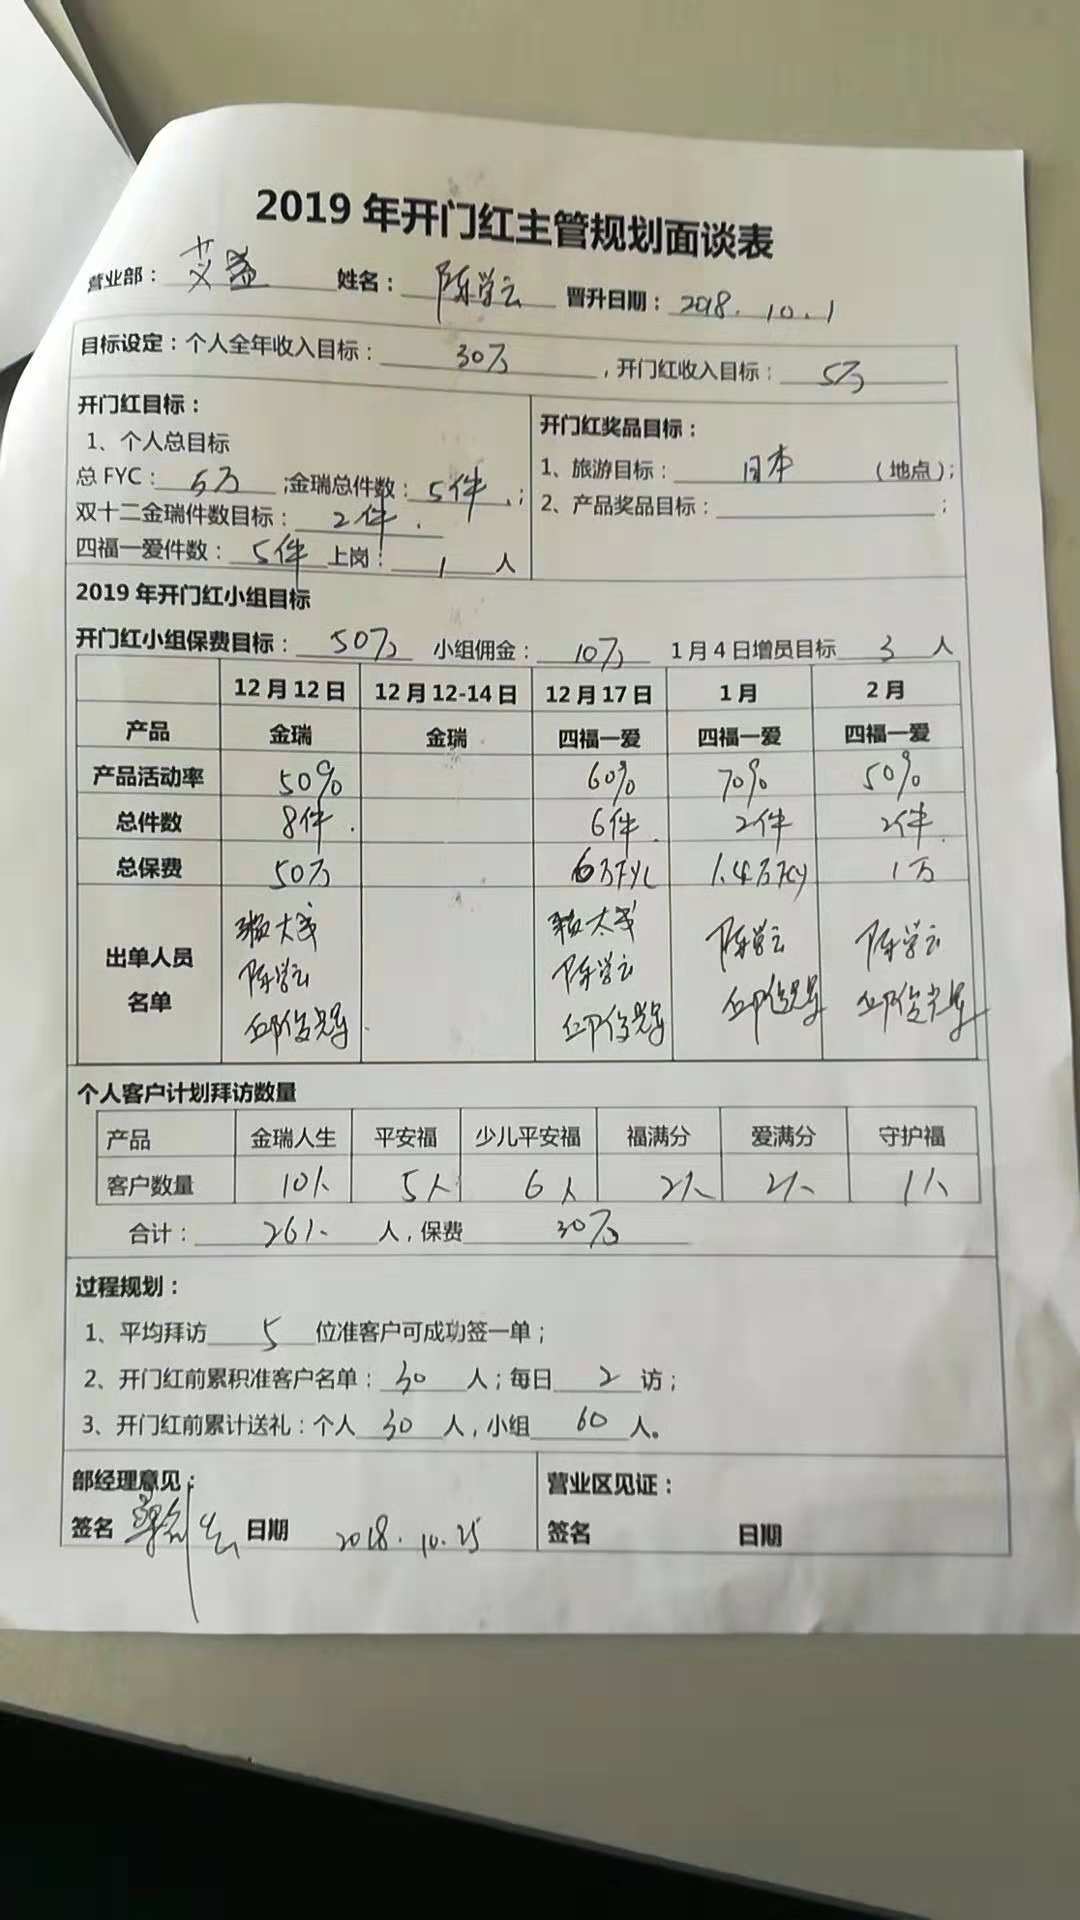 2019年开门红主管规划面谈表
营业部：艾盛 姓名：陈学云 晋升日期：2018.10.1
目标设定：个人全年收入目标：30万，开门红收入目标：5万
开门红目标：
1、个人总目标
总FYC：5万；金瑞总件数：5件；
双十二金瑞件数目标：2件.
四福一爱件数：5件 上岗：1人
开门红奖品目标：
1、旅游目标：日本（地点）；
2、产品奖品目标：；
2019年开门红小组目标
开门红小组保费目标：50万 小组佣金：10万 1月4日增员目标 3 人
12月12日 12月12-14日 12月17日 1月 2月
产品 金瑞 金瑞 四福一爱 四福一爱 四福一爱
产品活动率 50% 60% 70% 50%
总件数 8件. 6件. 2件 2件.
总保费 50万 6万FYC 1.4万FCY 1万
出单人员
名单
赖大成
陈学云
邱俊
赖太成
陈学云
邱俊
陈学云
邱俊
陈学云
邱俊
个人客户计划拜访数量
产品 金瑞人生 平安福 少儿平安福 福满分 爱满分 守护福
客户数量 10人 5人 6人 2人 2人 1人
合计：26人 人，保费 30万
过程规划：
1、平均拜访 5 位准客户可成功签一单；
2、开门红前累积准客户名单：30人；每日 2 访；
3、开门红前累计送礼：个人 30 人，小组 60 人。
部经理意见：
签名 日期 2018.10.25
营业区见证：
签名 日期